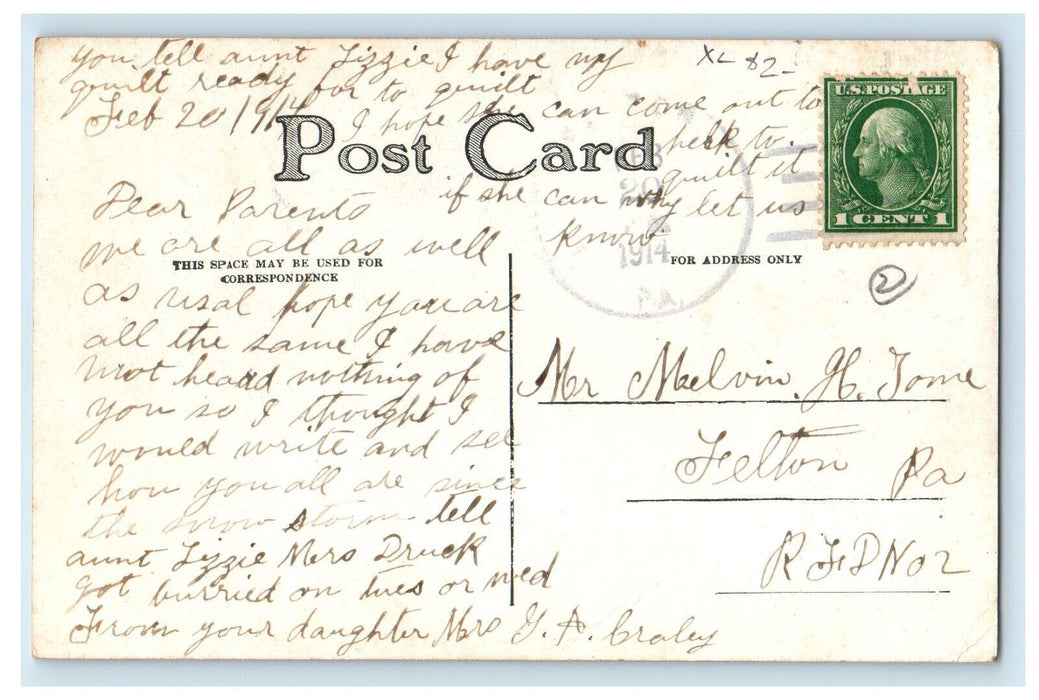 you tell aunt Lizzie I have my
quilt ready for to quilt
I hope she can come out to
help to
quilt it
if she can why let us
know
XL 82-
Feb 20 1914
Post Card
U.S. POSTAGE
1 CENT 1
20
1914
PA.
THIS SPACE MAY BE USED FOR
CORRESPONDENCE
FOR ADDRESS ONLY
2
Dear Parents
we are all as well
as usal hope you are
all the same I have
not heard nothing of
you so I thought I
would write and see
how you all are since
the snow storm tell
aunt Lizzie Mrs Druck
got burried on tues or wed
From your daughter Mrs G. A. Craley
Mr Melvin. H. Tome
Felton Pa
R F D No 2